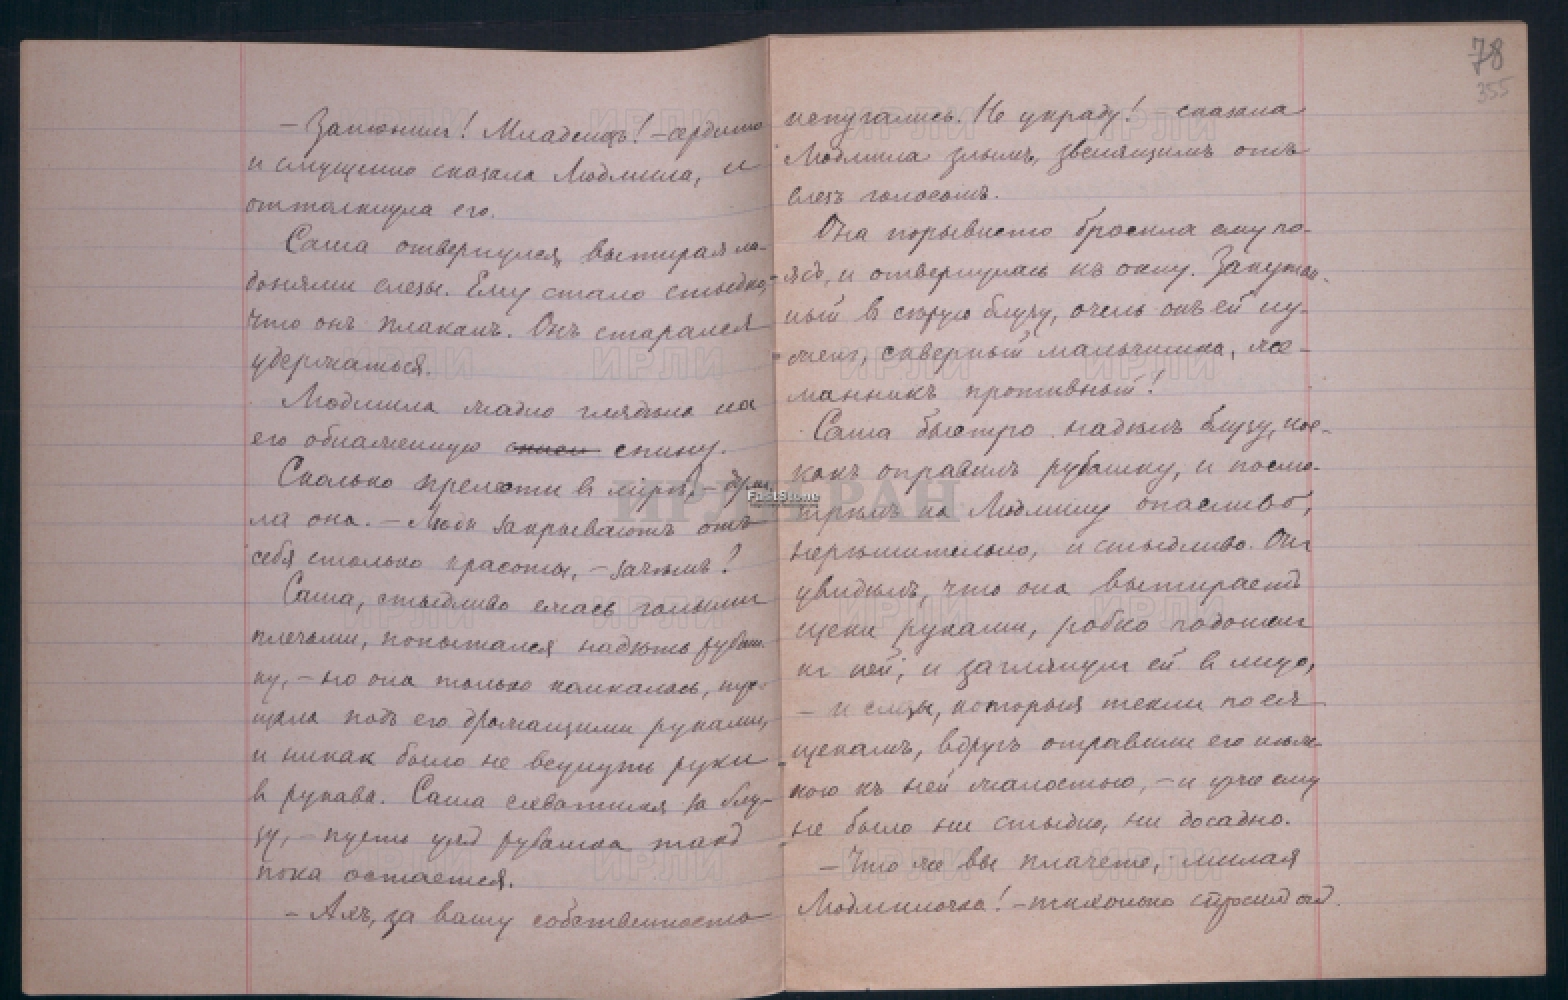 — Запюнилъ! Младенецъ! — сердито
и смущенно сказала Людмила, и
оттолкнула его.
Саша отвернулся, вытирая ла-
донями слезы. Ему стало стыдно,
что онъ плакалъ. Онъ старался
удержаться.
Людмила жадно глядѣла на
его обнаженную спину.
Сколько прелести в мірѣ, — дума
ла она. — Люди закрываютъ отъ
себя столько красоты, — зачѣмъ?
Саша, стыдливо ежась голыми
плечами, попытался надѣть рубаш
ку, — но она только комкалась, тре-
щала подъ его дрожащими руками,
и никак было не всунуть руки
в рукава. Саша схватился за блу-
зу, — пусть ужъ рубашка такъ
пока остается.
— Ахъ, за вашу собственность
78
355
испугались. Не украду! — сказала
Людмила злымъ, звенящимъ отъ
слезъ голосомъ.
Она порывисто бросила ему по-
ясъ, и отвернулась къ окну. Закутан-
ный в сѣрую блузу, очень онъ ей ну-
жен, скверный мальчишка, же-
манникъ противный!
Саша быстро надѣлъ блузу, кое-
какъ оправилъ рубашку, и посмо-
трѣлъ на Людмилу опасливо,
нерѣшительно, и стыдливо. Он
увидѣлъ, что она вытираетъ
щеки руками, робко подошел
к ней, и заглянул ей в лицо,
— и слезы, которыя текли по ея
щекамъ, вдругъ отравили его нѣж
ною къ ней жалостью, — и уже ему
не было ни стыдно, ни досадно.
— Что же вы плачете, милая
Людмилочка! — тихонько спросилъ онъ.
ИРЛИ РАН
FastStone
ИРЛИ